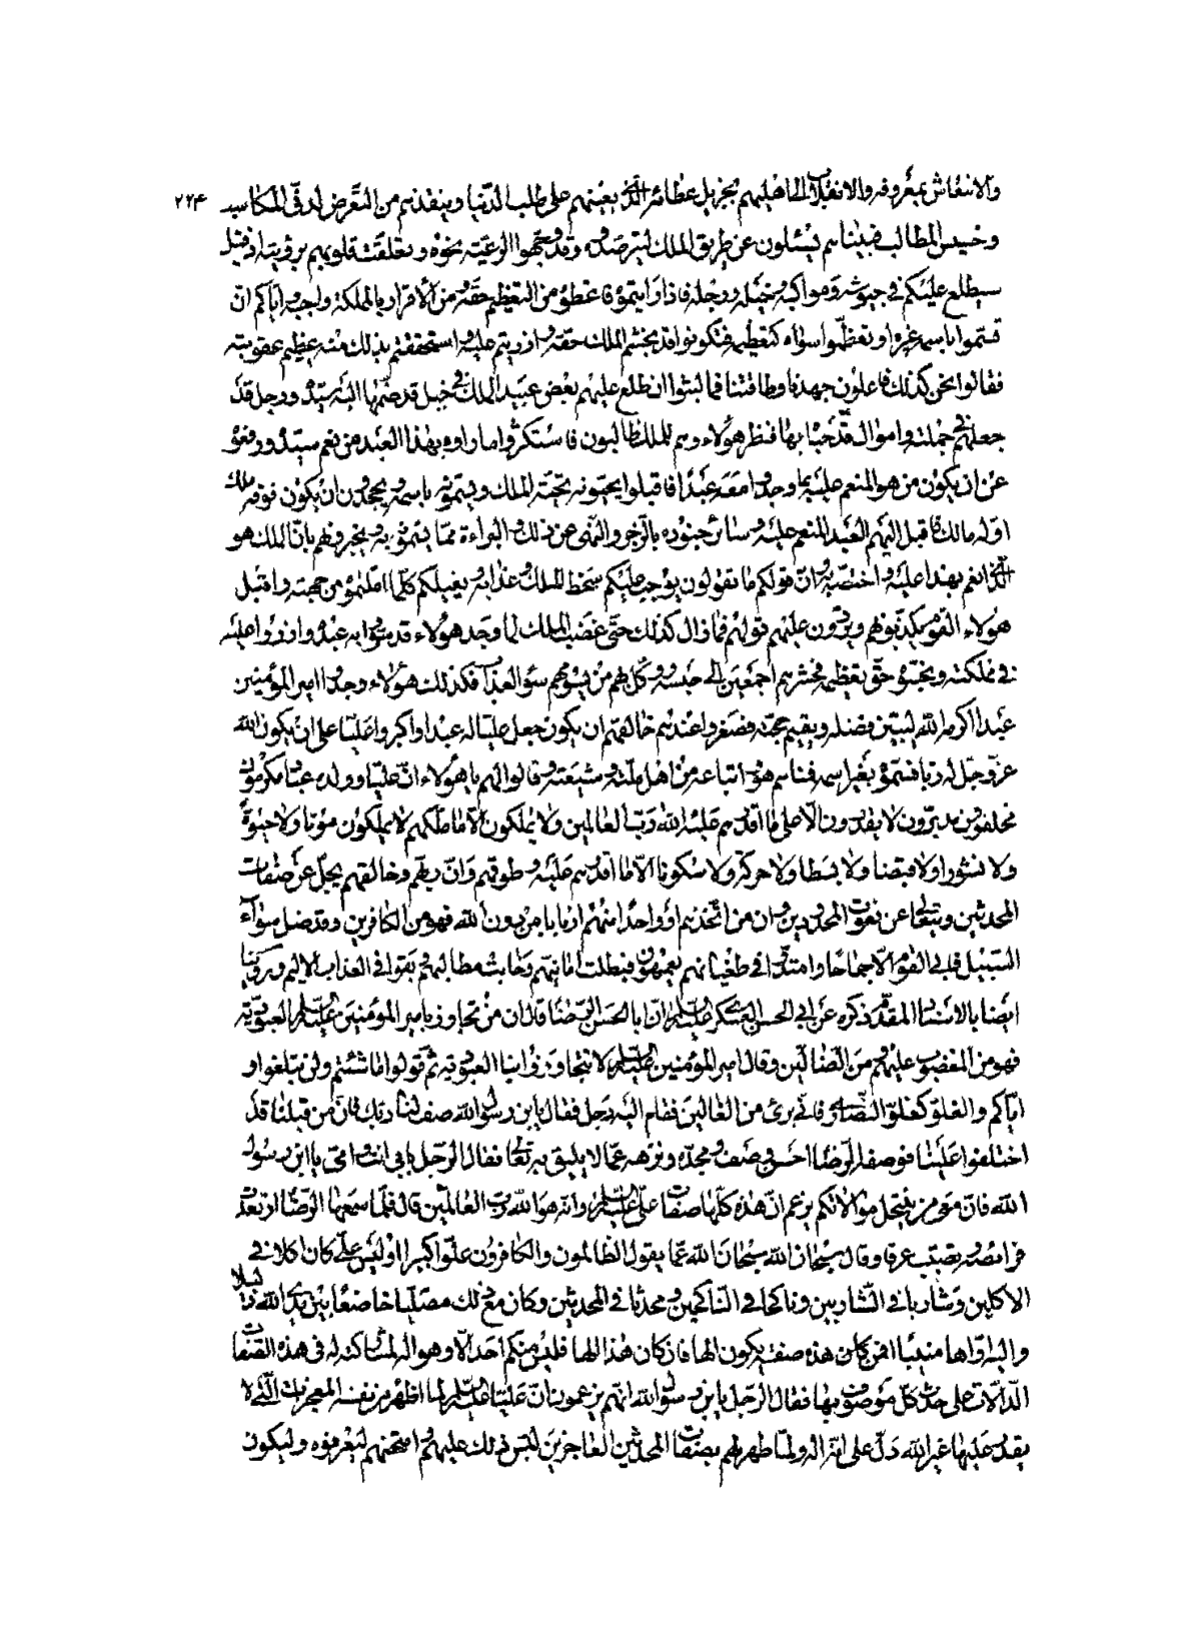 والانتعاش بمعروفه والانقلاب الى اهليهم بجزيل عطائه الذي يعينهم على طلب الدنيا وينقذهم من التعرض لدني المكاسب ٢٢٤
وخسيس المطالب فبينا هم يسئلون عن طريق الملك ليترصدوه وقد وجهوا الرغبة نحوه وتعلقت قلوبهم برؤيته اذ قيل
سيطلع عليكم في جيوشه ومواكبه وخيله ورجله فاذا رايتموه فاعطوه من التعظيم حقه ومن الاقرار بالمملكة واجبه واياكم ان
تسموا باسمه غيره او تعظموا سواه كتعظيمه فتكونوا قد بخستم الملك حقه وازريتم عليه واستحققتم بذلك منه عظيم عقوبته
فقالوا نحن كذلك فاعلون جهدنا وطاقتنا فما لبثوا ان طلع عليهم بعض عبيد الملك في خيل قد ضمها اليه سيده ورجل قد
جعلهم في جملته واموال قد حباه بها فنظر هؤلاء وهم للملك طالبون فاستكثروا ما راوه بهذا العبد من نعم سيده ورفعوه
عن ان يكون من هو المنعم عليه بما وجدوا معه عبدا فاقبلوا يحيونه تحية الملك ويسمونه باسمه ويجحدون ان يكون فوقه ملك
او له مالك فاقبل اليهم العبد المنعم عليه وسائر جنوده بالزجر والنهي عن ذلك والبراءة مما يسمونه به ويخبرونهم بان الملك هو
الذي انعم بهذا عليه واختصه به وان قولكم ما تقولون يوجب عليكم سخط الملك وعذابه ويفيتكم كلما املتموه من جهته واقبل
هؤلاء القوم يكذبونهم ويردون عليهم قولهم فما زال كذلك حتى غضب الملك لما وجد هؤلاء قد سووا به عبده وازروا عليه
في مملكته وبخسوه حق تعظيمه فحشرهم اجمعين الى حبسه ووكل بهم من يسومهم سوء العذاب فكذلك هؤلاء وجدوا امير المؤمنين
عبدا اكرمه الله ليبين فضله ويقيم حجته فصغر واعندهم خالقهم ان يكون جعل عليا له عبدا واكبروا عليا على ان يكون الله
عز وجل له ربا فسموه بغير اسمه فنهاهم هو واتباعه من اهل ملته وشيعته وقالوا لهم يا هؤلاء ان عليا وولده عباد مكرمون
مخلوقون مدبرون لا يقدرون الا على ما اقدرهم عليه الله رب العالمين ولا يملكون الا ما ملكهم لا يملكون موتا ولا حيوة
ولا نشورا ولا قبضا ولا بسطا ولا حركة ولا سكونا الا ما اقدرهم عليه وطوقهم وان ربهم وخالقهم يجل عن صفات
المحدثين ويتعالى عن نعوت المحدودين وان من اتخذهم او واحدا منهم اربابا من دون الله فهو من الكافرين وقد ضل سواء
السبيل فابى القوم الا جماحا وامتدوا في طغيانهم يعمهون فبطلت امانيهم وخابت مطالبهم وبقوا في العذاب الاليم وروينا
ايضا بالاسناد المقدم ذكره عن ابي الحسن العسكري عليه السلام ان ابا الحسن الرضا قال ان من تجاوز بامير المؤمنين عليه السلام العبودية
فهو من المغضوب عليهم ومن الضالين وقال امير المؤمنين عليه السلام لا تتجاوزوا بنا العبودية ثم قولوا ما شئتم ولن تبلغوا و
اياكم والغلو كغلو النصارى فاني بريء من الغالين فقام اليه رجل فقال يا ابن رسول الله صف لنا ربك فان من قبلنا قد
اختلفوا علينا فوصفه الرضا احسن وصف ومجده ونزهه عما لا يليق به تعالى فقال الرجل بابي انت وامي يا ابن رسول
الله فان معي من ينتحل موالاتكم يزعم ان هذه كلها صفات علي عليه السلام وانه هو الله رب العالمين قال فلما سمعها الرضا ارتعدت
فرائصه وتصبب عرقا وقال سبحان الله سبحان الله عما يقول الظالمون والكافرون علوا كبيرا اوليس علي كان اكلا في
الاكلين وشاربا في الشاربين وناكحا في الناكحين ومحدثا في المحدثين وكان مع ذلك مصليا خاضعا بين يدي الله ذليلا
واليه اواها منيبا افمن كان هذه صفته يكون الها فان كان هذا الها فليس منكم احد الا وهو اله لمشاركته له في هذه الصفات
الدالات على حدث كل موصوف بها فقال الرجل يا ابن رسول الله انهم يزعمون ان عليا عليه السلام لما اظهر من نفسه المعجزات التي لا
يقدر عليها غير الله دل على انه اله ولما ظهر لهم بصفات المحدثين العاجزين لبس ذلك عليهم وامتحنهم ليعرفوه وليكون